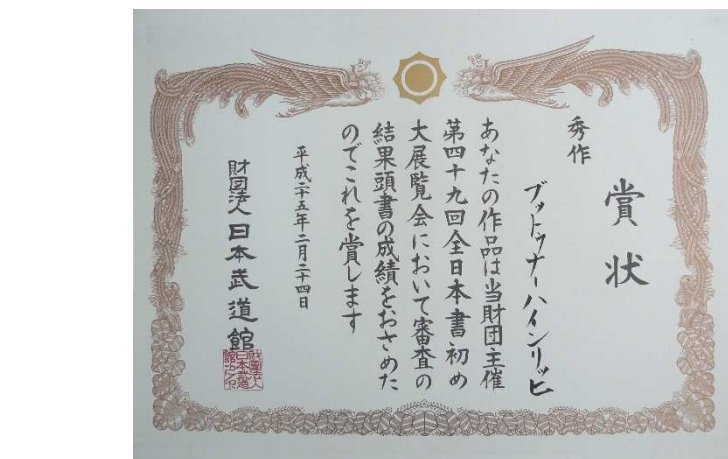 賞状
秀作
ブットゥナーハインリッヒ
あなたの作品は当財団主催
第四十九回全日本書初め
大展覧会において審査の
結果頭書の成績をおさめた
のでこれを賞します
平成二十五年二月二十四日
財団法人日本武道館